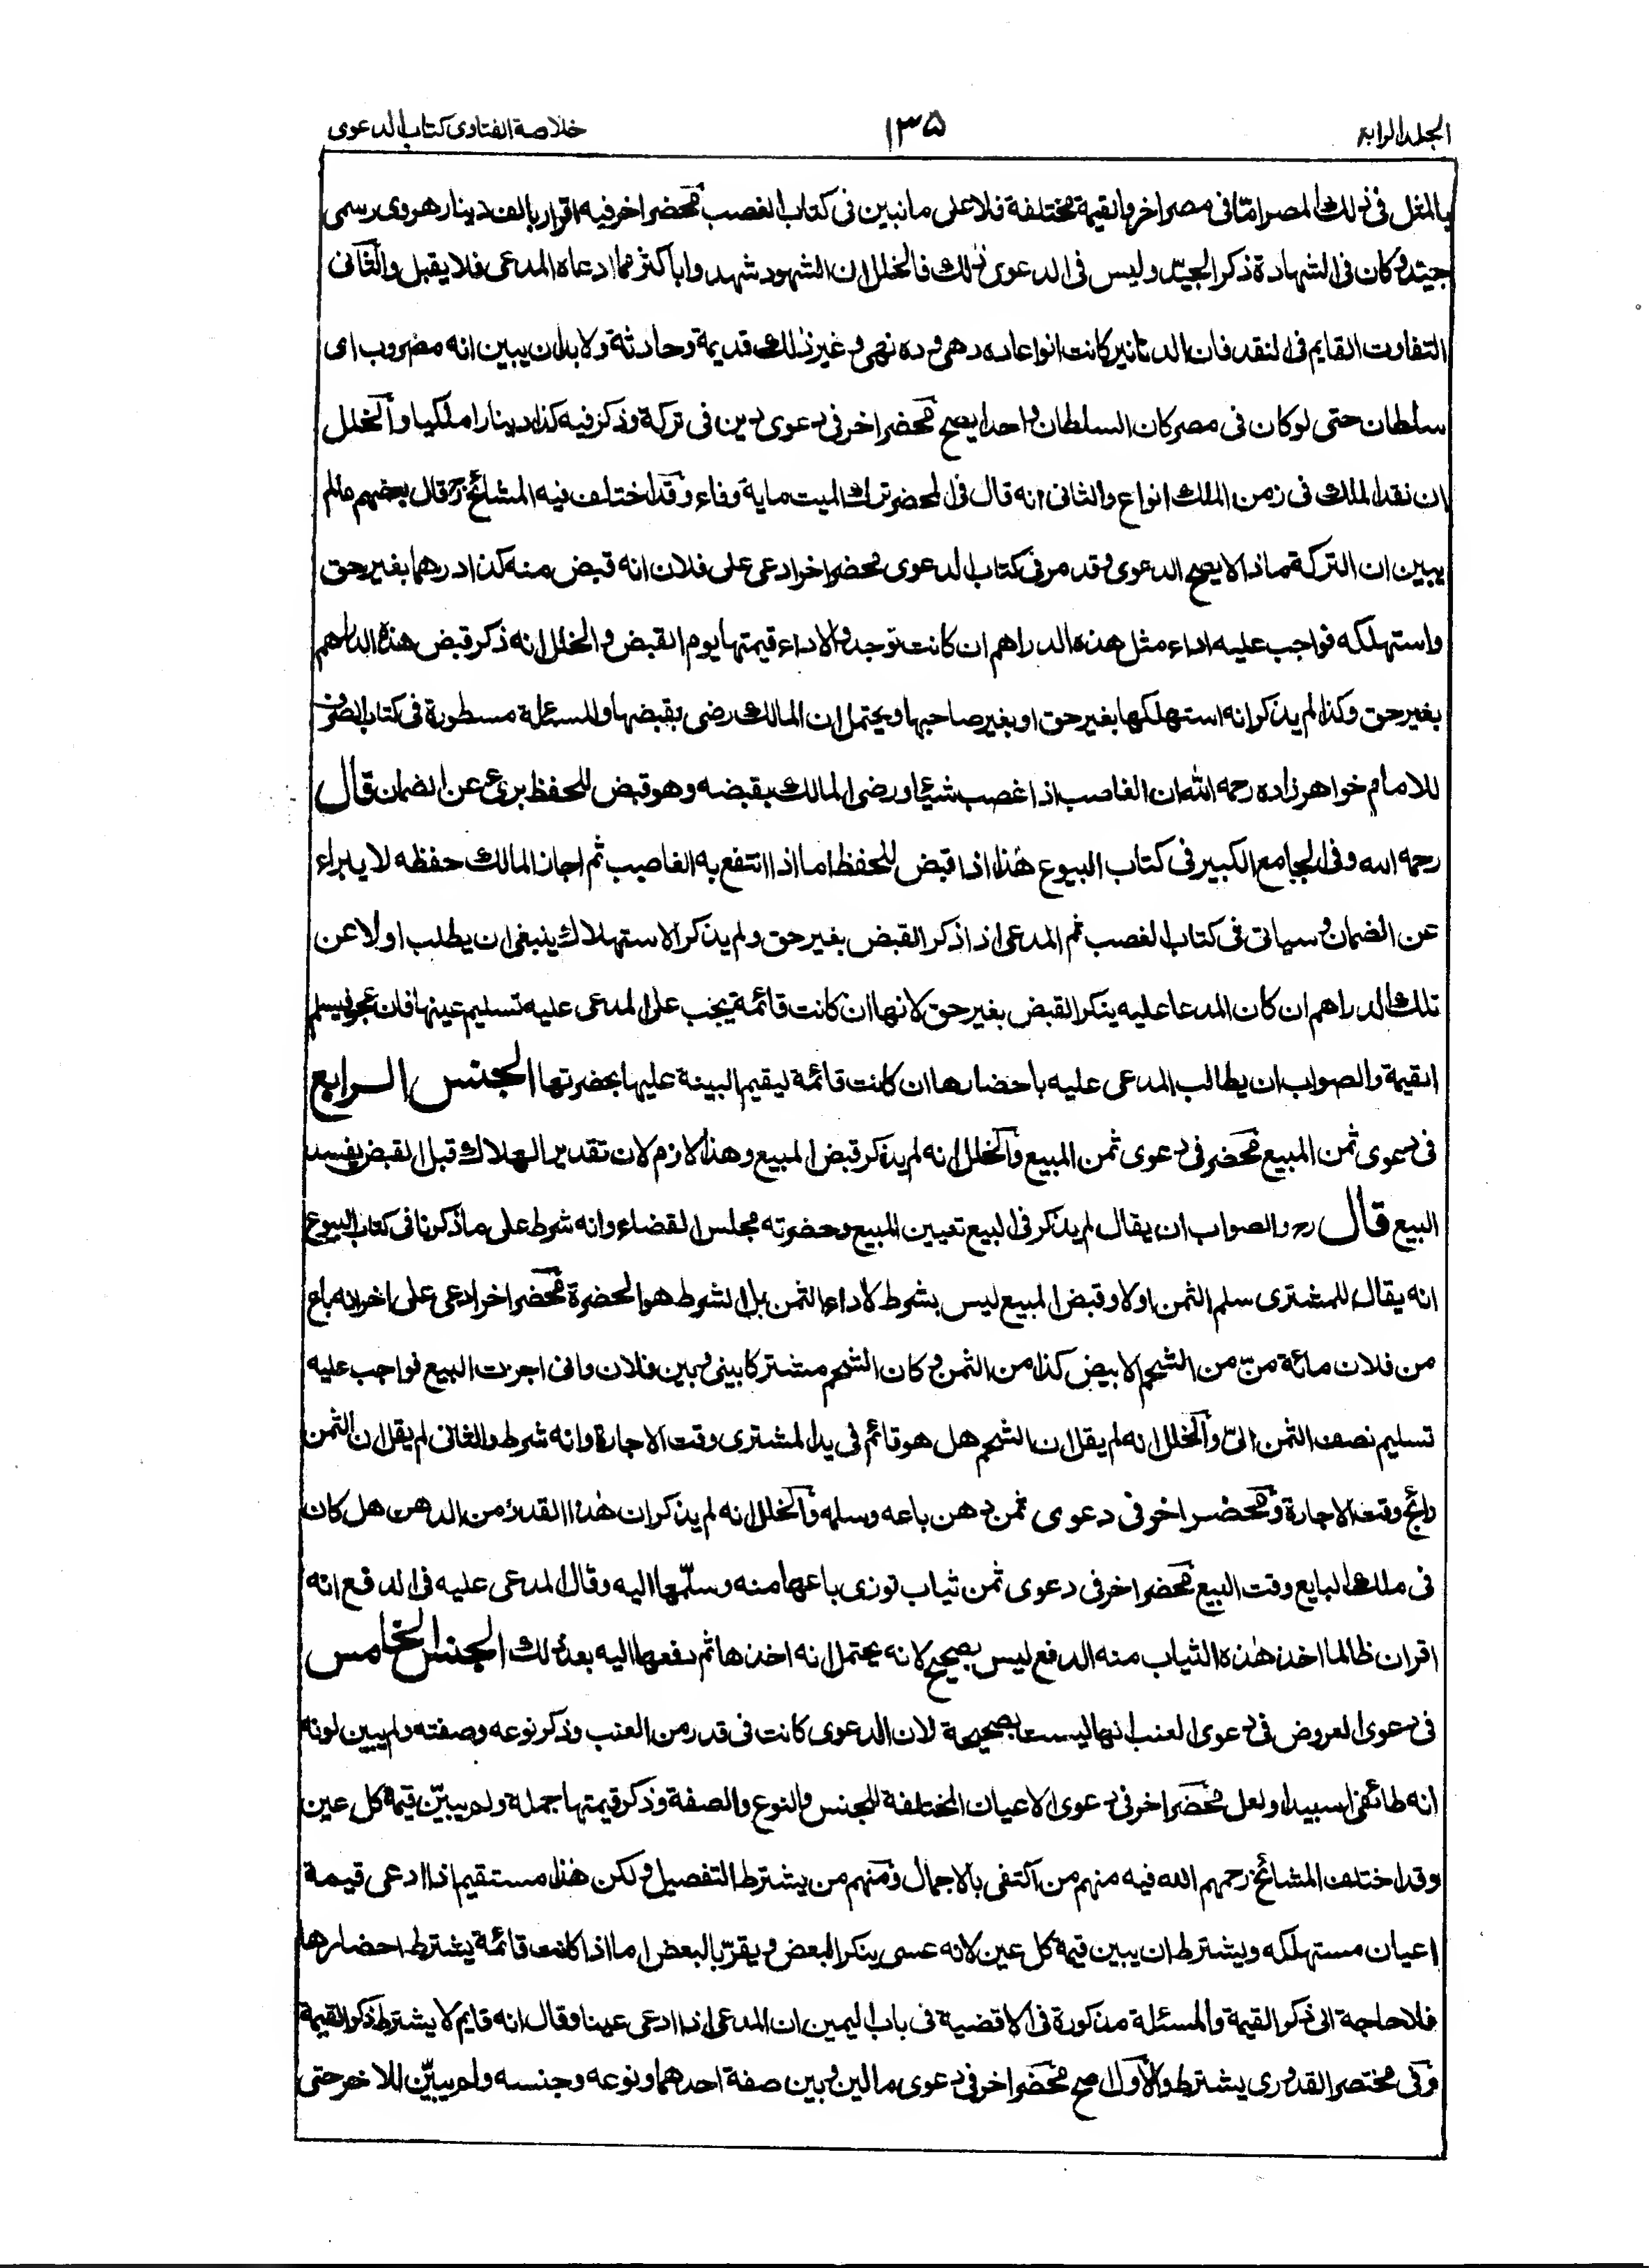 الجلد الرابع ١٣٥ خلاصة الفتاوى كتاب الدعوى
بالمثل فى ذلك المصر امّا فى مصر اخر والقيمة مختلفة فلا على ما نبين فى كتاب الغصب محضر اخر فيه اقرار بالف دينار هروى رسمى
جيّد وكان فى الشهادة ذكر الجيّد وليس فى الدعوى ذلك فالخلل ان الشهود شهدوا باكثر مما ادعاه المدعى فلا يقبل والثانى
التفاوت القايم فى النقد فان الدنانير كانت انواعا ده دهى و ده نهى وغير ذلك قديمة وحادثة ولا بد ان يبين انه مضروب اى
سلطان حتى لو كان فى مصر كان السلطان واحدا يصح محضر اخر فى دعوى دين فى تركة وذكر فيه كذا دينارا ملكيا والخلل
ان نقد الملك فى زمن الملك انواع والثانى انه قال فى المحضر ترك الميت مايه وفاء وقد اختلف فيه المشائخ رح قال بعضهم مالم
يبين ان التركة ماذا لا يصح الدعوى وقد مر فى كتاب الدعوى محضر اخر ادعى على فلان انه قبض منه كذا درهما بغير حق
واستهلكه فواجب عليه اداء مثل هذه الدراهم ان كانت توجد والا اداء قيمتها يوم القبض والخلل انه ذكر قبض هذه الدراهم
بغير حق وكذا لم يذكر انه استهلكها بغير حق او بغير صاحبها ويحتمل ان المالك رضى بقبضها والمسئلة مسطورة فى كتاب الصرف
للامام خواهرزاده رحمه الله ان الغاصب اذا غصب شيئا ورضى المالك بقبضه وهو قبض للحفظ برئ عن الضمان قال
رحمه الله وفى الجامع الكبير فى كتاب البيوع هذا اذا قبض للحفظ اما اذا انتفع به الغاصب ثم اجاز المالك حفظه لا يبراء
عن الضمان وسياتى فى كتاب الغصب ثم المدعى اذا ذكر القبض بغير حق ولم يذكر الاستهلاك ينبغى ان يطلب اولا عن
تلك الدراهم ان كان المدعا عليه ينكر القبض بغير حق لانها ان كانت قائمة يجب على المدعى عليه تسليم عينها فان عجز يسلم
القيمة والصواب ان يطالب المدعى عليه باحضارها ان كانت قائمة ليقيم البينة عليها بحضرتها الجنس الرابع
فى دعوى ثمن المبيع محضر فى دعوى ثمن المبيع والخلل انه لم يذكر قبض المبيع وهذا لازم لان تقدير الهلاك قبل القبض يفسد
البيع قال رح والصواب ان يقال لم يذكر فى البيع تعيين المبيع وحضرته مجلس القضاء وانه شرط على ما ذكرنا فى كتاب البيوع
انه يقال للمشترى سلم الثمن اولا وقبض المبيع ليس بشرط لاداء الثمن بل الشرط هو الحضرة محضر اخر ادعى على اخر انه باع
من فلان مائة منّ من الشحم الابيض كذا من الثمن وكان الشحم مشتركا بينى وبين فلان وانى اجزت البيع فواجب عليه
تسليم نصف الثمن الىّ والخلل انه لم يقل ان الشحم هل هو قائم فى يد المشترى وقت الاجازة وانه شرط والثانى لم يقل ان الثمن
رائج وقت الاجازة ومحضر اخر فى دعوى ثمن دهن باعه وسلمه والخلل انه لم يذكر ان هذا القدر من الدهن هل كان
فى ملك البايع وقت البيع محضر اخر فى دعوى ثمن ثياب توزى باعها منه وسلّمها اليه وقال المدعى عليه فى الدفع انه
اقر ان ظالما اخذ هذه الثياب منه الدفع ليس بصحيح لانه يحتمل انه اخذها ثم دفعها اليه بعد ذلك الجنس الخامس
فى دعوى العروض فى دعوى العنب انها ليست بصحيحة لان الدعوى كانت فى قدر من العنب وذكر نوعه وصفته ولم يبين لونه
انه طائفى اسبيد او لعل محضر اخر فى دعوى الاعيان المختلفة للجنس والنوع والصفة وذكر قيمتها جملة ولم يبيّن قيمة كل عين
وقد اختلف المشائخ رحمهم الله فيه منهم من اكتفى بالاجمال ومنهم من يشترط التفصيل ولكن هذا مستقيم اذا ادعى قيمة
اعيان مستهلكه ويشترط ان يبين قيمة كل عين لانه عسى ينكر البعض ويقرّ بالبعض اما اذا كانت قائمة يشترط احضارها
فلا حاجة الى ذكر القيمة والمسئلة مذكورة فى الاقضية فى باب اليمين ان المدعى اذا ادعى عينا وقال انه قايم لا يشترط ذكر القيمة
وفى مختصر القدورى يشترط والاول اصح محضر اخر فى دعوى مالين وبين صفة احدهما ونوعه وجنسه ولم يبيّن للاخر حتى